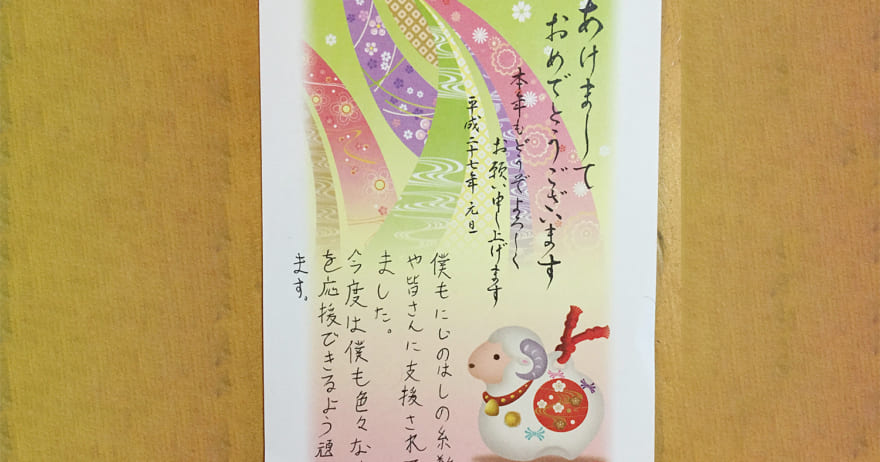 あけまして
おめでとうございます
本年もどうぞよろしく
お願い申し上げます
平成二十七年 元旦
僕もにじのはしの
や皆さんに支援され
ました。
今度は僕も色々な
を応援できるよう
ます。